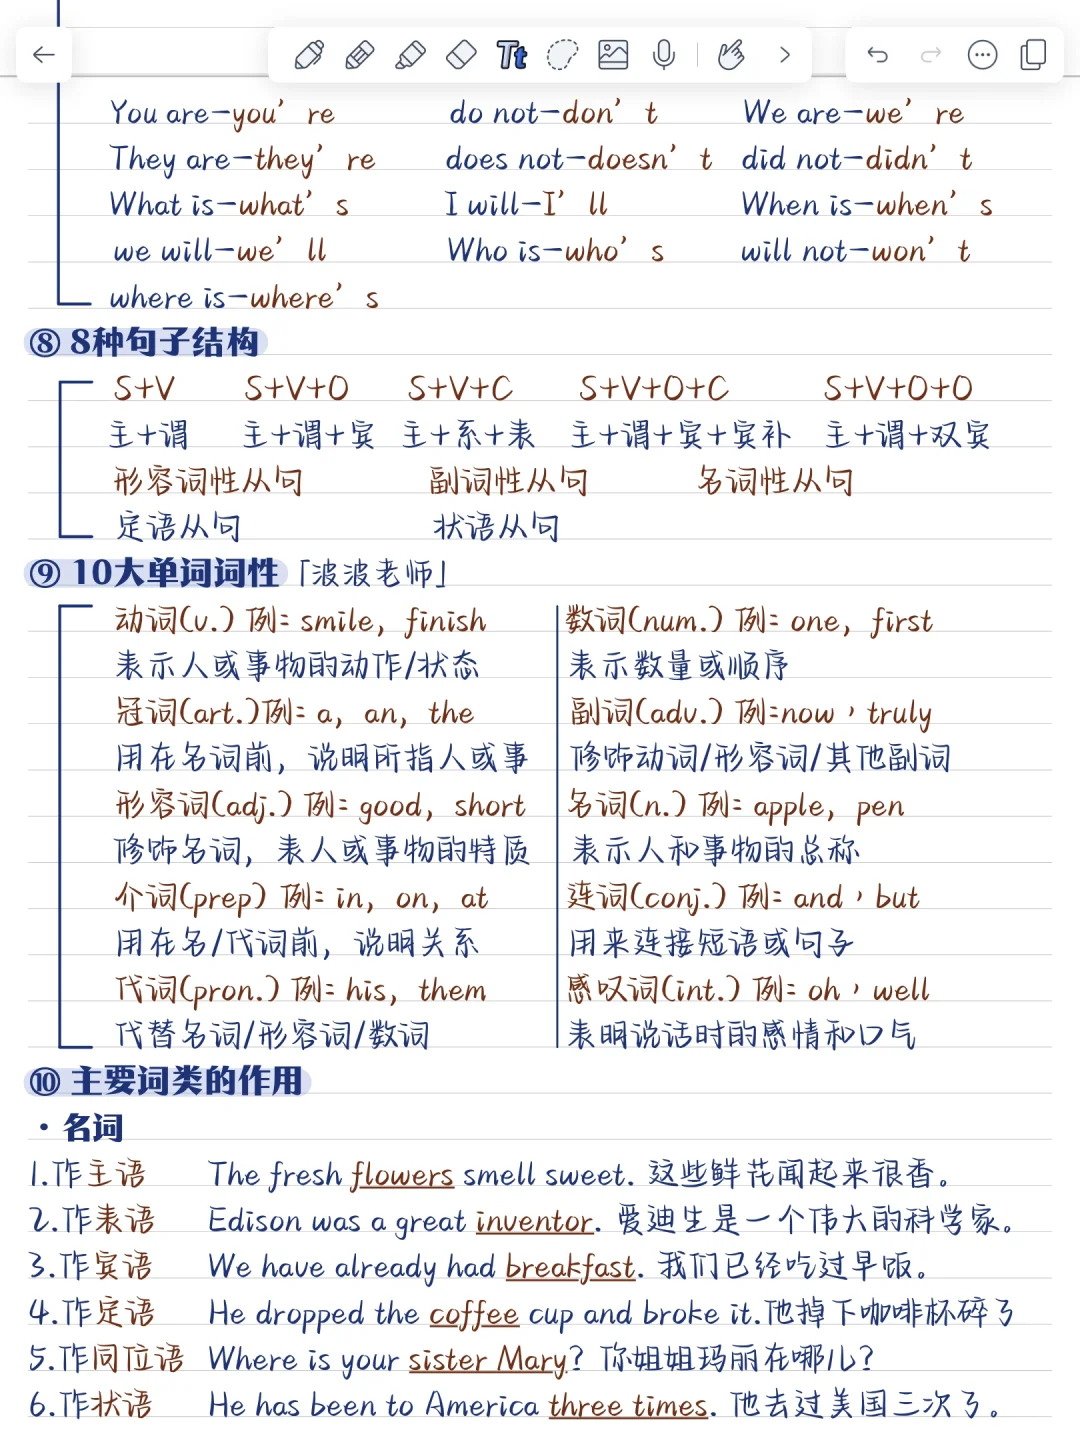 Tt
You are—you’re do not—don’t We are—we’re
They are—they’re does not—doesn’t did not—didn’t
What is—what’s I will—I’ll When is—when’s
we will—we’ll Who is—who’s will not—won’t
where is—where’s
⑧ 8种句子结构
S+V S+V+O S+V+C S+V+O+C S+V+O+O
主+谓 主+谓+宾 主+系+表 主+谓+宾+宾补 主+谓+双宾
形容词性从句 副词性从句 名词性从句
定语从句 状语从句
⑨ 10大单词词性「波波老师」
动词(v.) 例: smile, finish
表示人或事物的动作/状态
冠词(art.)例: a, an, the
用在名词前, 说明所指人或事
形容词(adj.) 例: good, short
修饰名词, 表人或事物的特质
介词(prep) 例: in, on, at
用在名/代词前, 说明关系
代词(pron.) 例: his, them
代替名词/形容词/数词
数词(num.) 例: one, first
表示数量或顺序
副词(adv.) 例:now，truly
修饰动词/形容词/其他副词
名词(n.) 例: apple, pen
表示人和事物的总称
连词(conj.) 例: and，but
用来连接短语或句子
感叹词(int.) 例: oh，well
表明说话时的感情和口气
⑩ 主要词类的作用
· 名词
1.作主语 The fresh flowers smell sweet. 这些鲜花闻起来很香。
2.作表语 Edison was a great inventor. 爱迪生是一个伟大的科学家。
3.作宾语 We have already had breakfast. 我们已经吃过早饭。
4.作定语 He dropped the coffee cup and broke it.他掉下咖啡杯碎了
5.作同位语 Where is your sister Mary? 你姐姐玛丽在哪儿?
6.作状语 He has been to America three times. 他去过美国三次了。